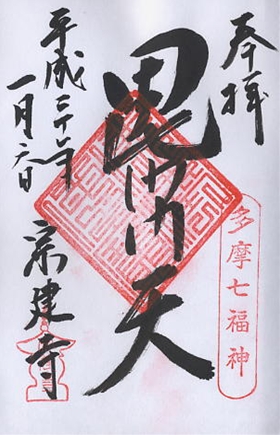 奉拝
多摩七福神
毘沙門天
平成二十年
一月六日
宗建寺